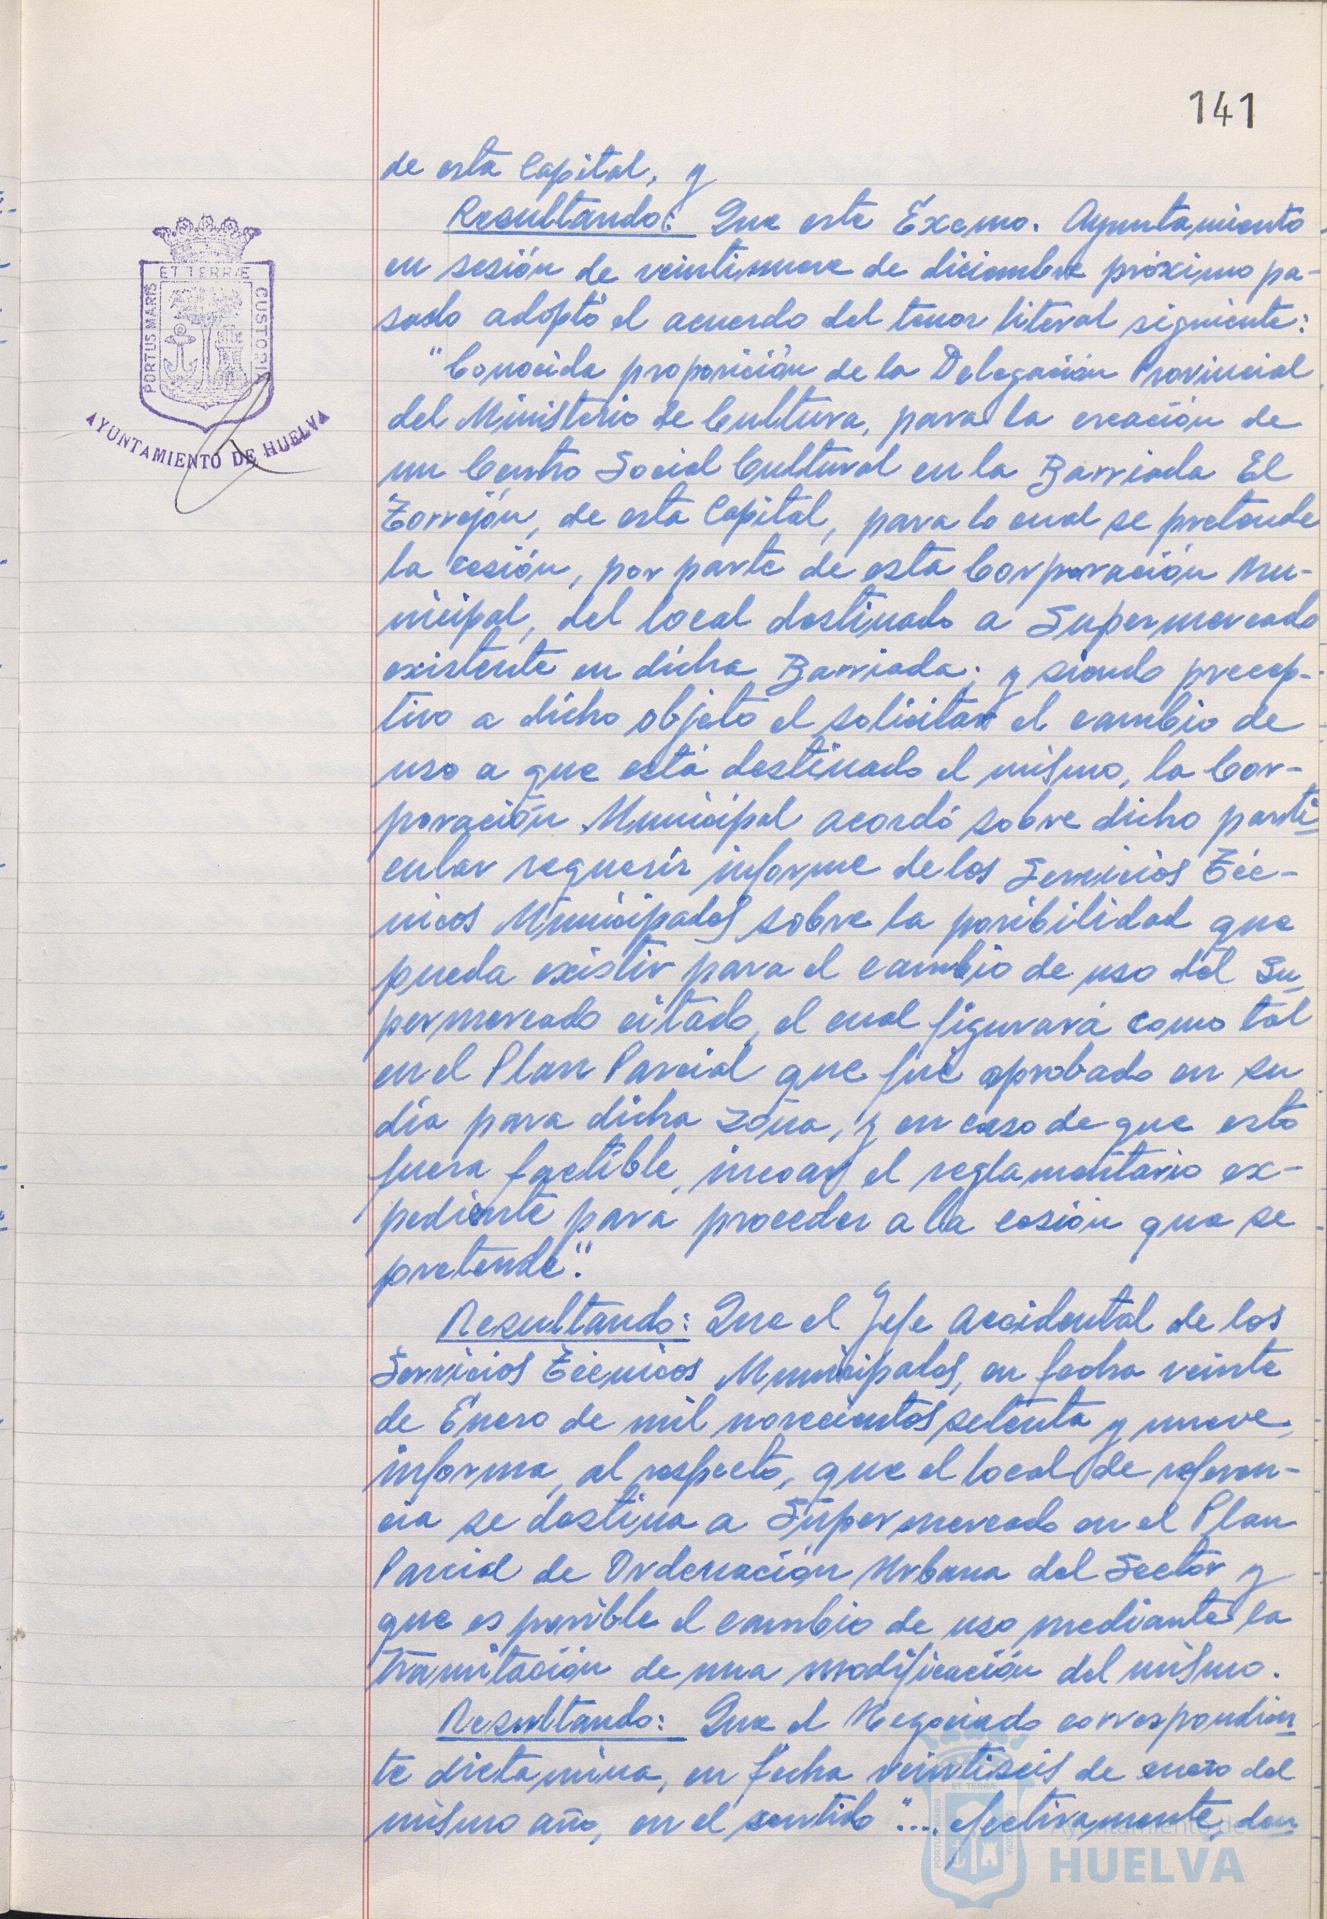 141
de esta Capital, y
Resultando: Que este Excmo. Ayuntamiento
en sesión de veintinueve de diciembre próximo pa-
sado adoptó el acuerdo del tenor literal siguiente:
"Conocida proposición de la Delegación Provincial
del Ministerio de Cultura, para la creación de
un Centro Social Cultural en la Barriada El
Torrejón, de esta Capital, para lo cual se pretende
la cesión, por parte de esta Corporación Mu-
nicipal, del local destinado a Supermercado
existente en dicha Barriada; y siendo precep-
tivo a dicho objeto el solicitar el cambio de
uso a que está destinado el mismo, la Cor-
poración Municipal acordó sobre dicho parti-
cular requerir informe de los Servicios Téc-
nicos Municipales sobre la posibilidad que
pueda existir para el cambio de uso del Su-
permercado citado, el cual figurará como tal
en el Plan Parcial que fué aprobado en su
día para dicha zona, y en caso de que esto
fuera factible, incoar el reglamentario ex-
pediente para proceder a la cesión que se
pretende".
Resultando: Que el Jefe Accidental de los
Servicios Técnicos Municipales, en fecha veinte
de Enero de mil novecientos setenta y nueve,
informa, al respecto, que el local de referen-
cia se destina a Supermercado en el Plan
Parcial de Ordenación Urbana del Sector y
que es posible el cambio de uso mediante la
tramitación de una modificación del mismo.
Resultando: Que el Negociado correspondien-
te dictamina, en fecha veintiseis de enero del
mismo año, en el sentido "... efectivamente, den-
PORTUS MARIS ET TERRÆ CUSTODIA
AYUNTAMIENTO DE HUELVA
PORTUS MARIS ET TERRÆ CUSTODIA
Ayuntamiento de
HUELVA